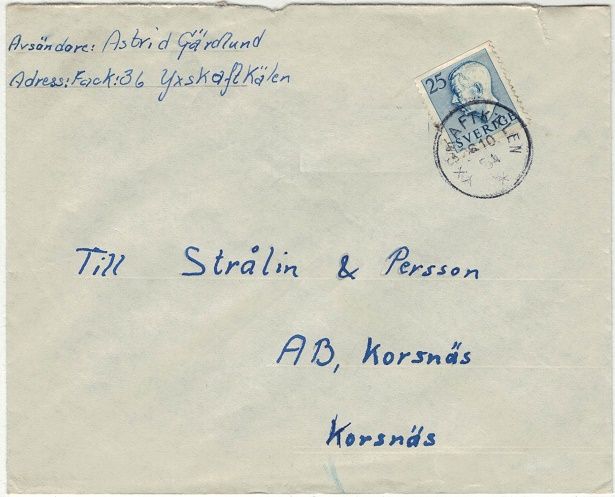 Avsändare: Astrid Gärdlund
Adress: Fack: 36 Yxskaftkälen
25
SVERIGE
YXSKAFTKÄLEN
10
54
Till Strålin & Persson
AB, Korsnäs
Korsnäs